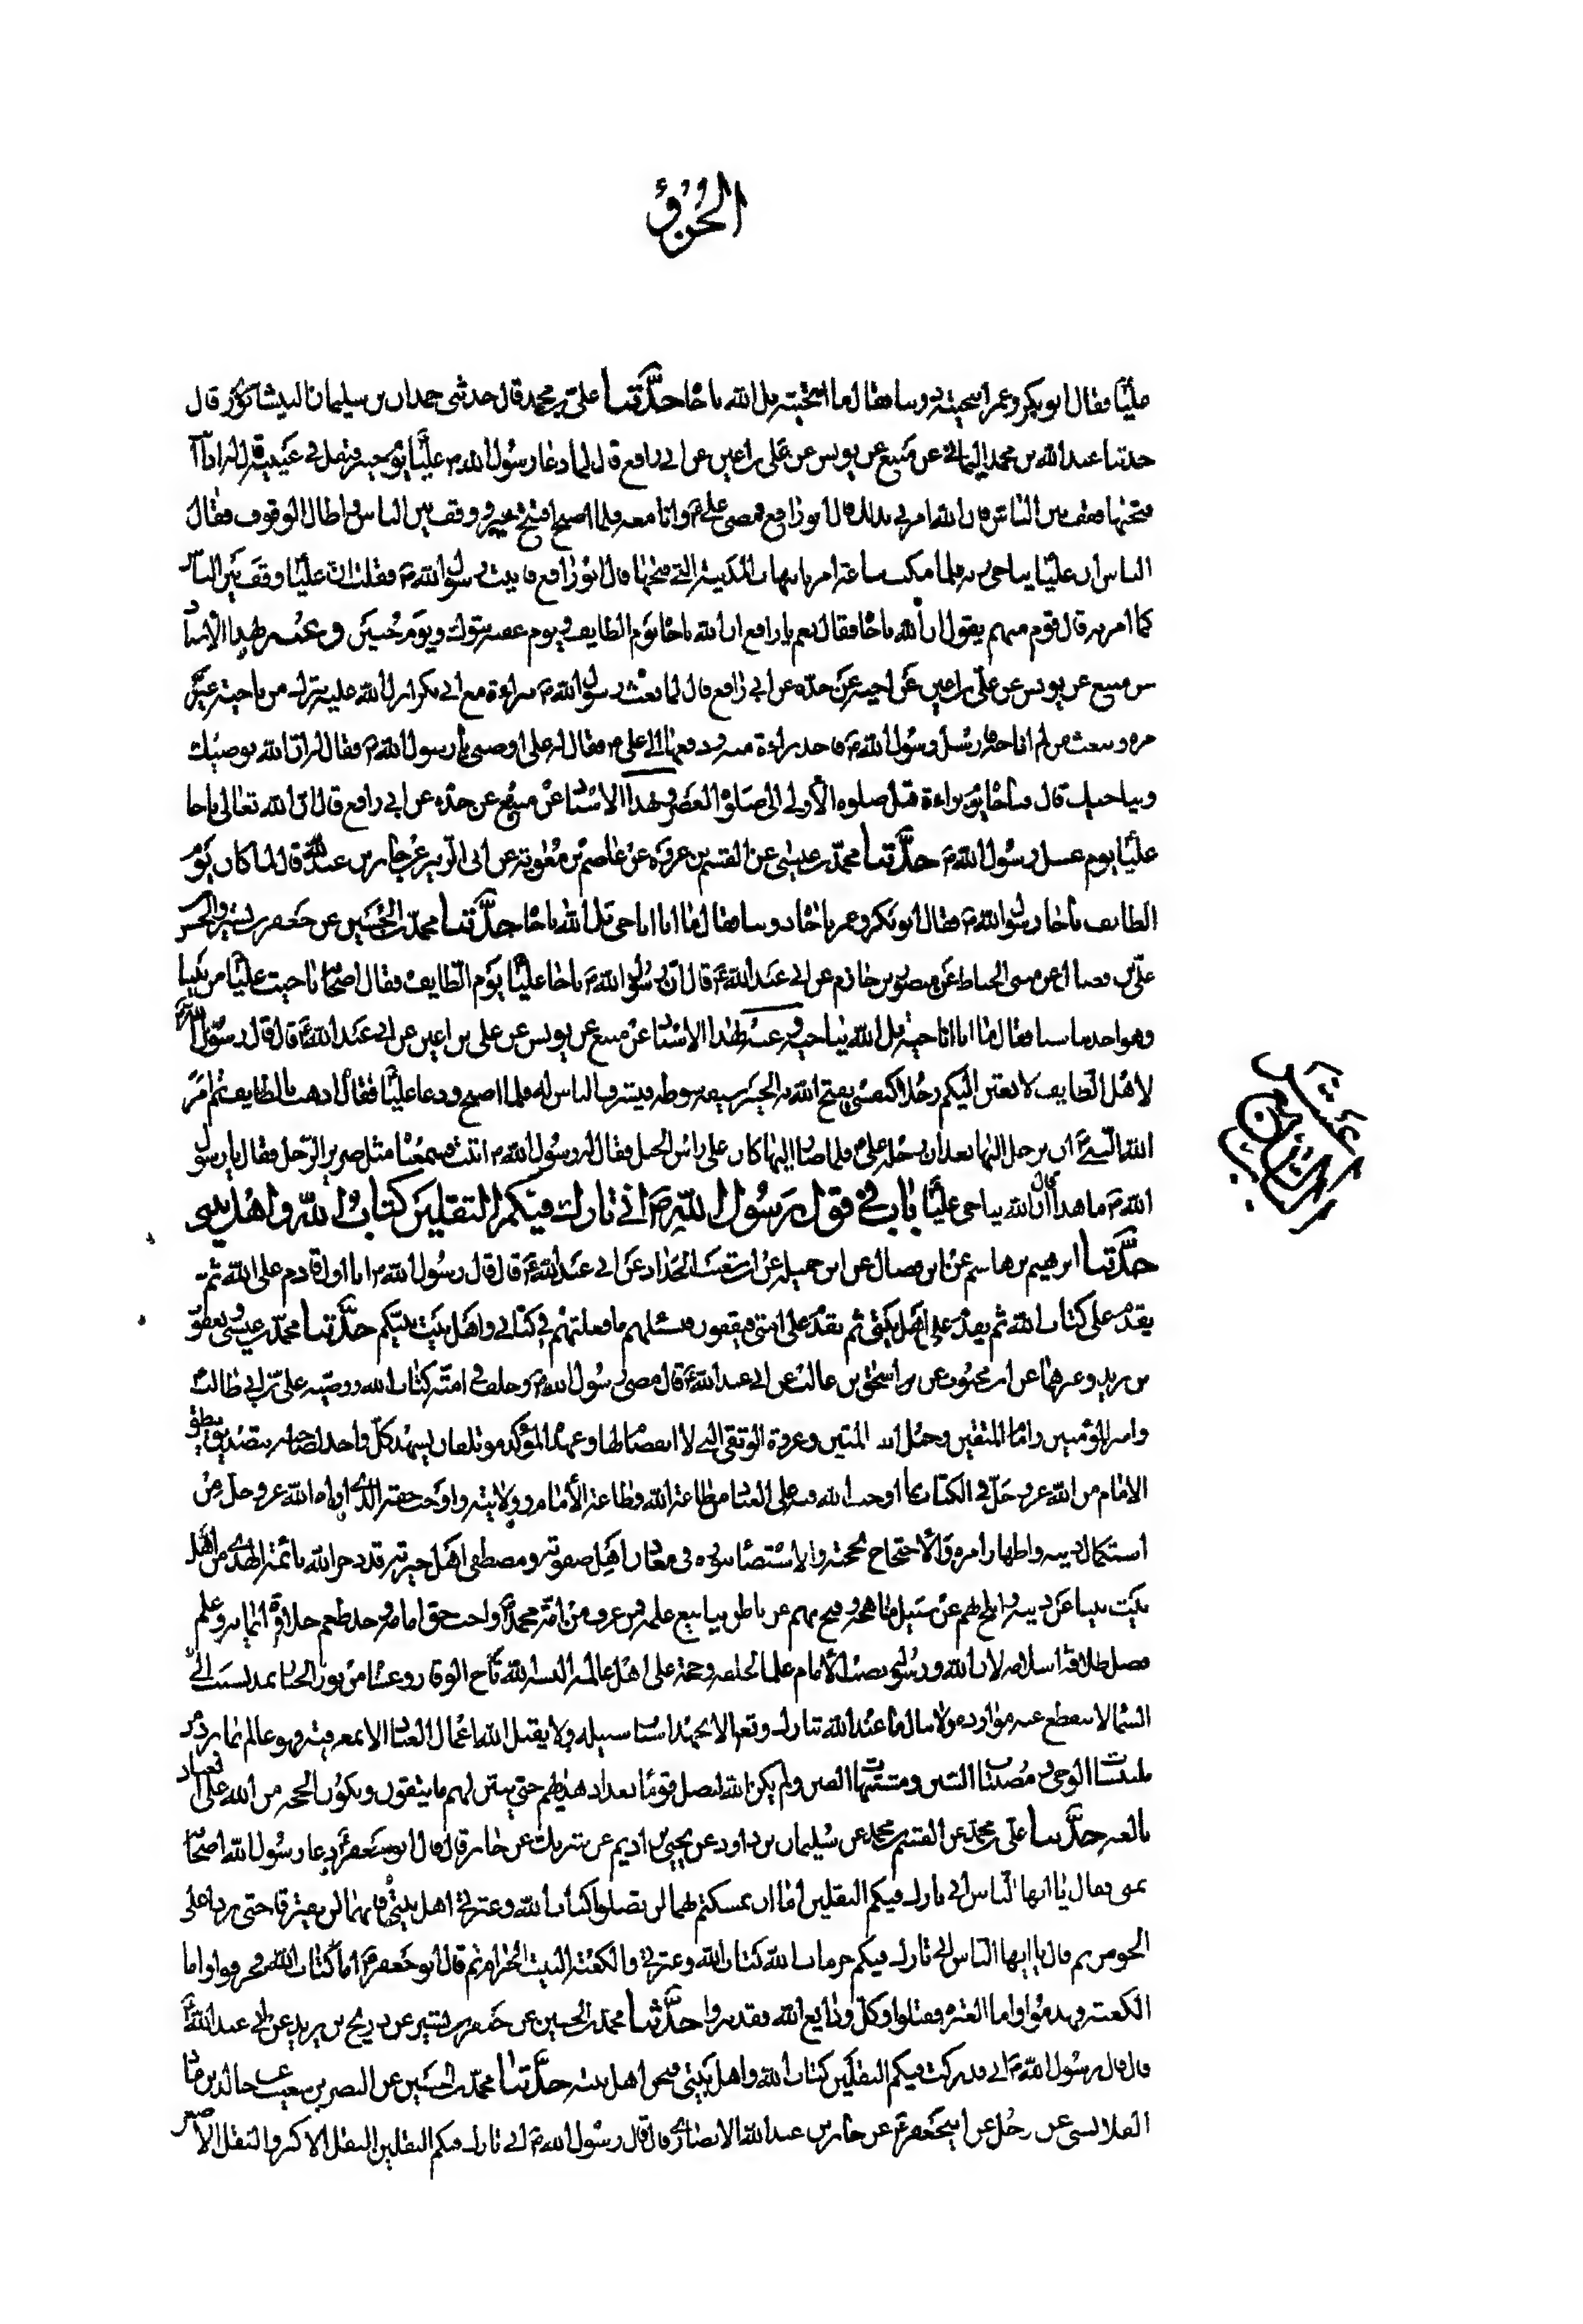 الجزؤ
عليا فقال ابو بكر وعمر انتجيته دوننا فقال ما انتجيته بل الله ناجاه حدّثنا علي بن محمد قال حدثنى حمدان بن سليمان النيشابورى قال
حدثنا عبد الله بن محمد اليمانى عن منيع عن يونس عن على بن اعين عن ابى رافع قال لما دعا رسول الله ص عليّا يوم خيبر فتفل فى عينيه قال له اذا انت
فتحتها فقف بين الناس فان الله امرنى بذلك قال ابو رافع فمضى على ع وانا معه فلما اصبح افتتح خيبر ووقف بين الناس واطال الوقوف فقال
الناس ان عليّا يناجى ربه فلما مكث ساعة امر بانتهاب المدينة التى فتحها قال ابو رافع فاتيت رسول الله ص فقلت ان عليا وقف بين الناس
كما امرته قال قوم منهم يقول ان الله ناجاه فقال نعم يا رافع ان الله ناجاه يوم الطايف ويوم عقبة تبوك ويوم حنين وعنه بهذا الاسناد
عن منيع عن يونس عن على بن اعين عن اخيه عن جدّه عن ابى رافع قال لما بعث رسول الله ص ببراءة مع ابى بكر انزل الله عليه تترك من ناجيته غير
مرة وتبعث من لم اناجه فارسل رسول الله ص فاخذ براءة منه ودفعها الى على ع فقال له على اوصنى يا رسول الله ص فقال له ان الله يوصيك
ويناجيك قال فناجاه يوم براءة قبل صلوة الاولى الى صلوة العصر وبهذا الاسناد عن منيع عن جدّه عن ابى رافع قال ان الله تعالى ناجا
عليّا يوم غسل رسول الله ص حدّثنا محمد بن عيسى عن القسم بن عروة عن عاصم بن معوية عن ابى الزبير عن جابر بن عبد الله قال لما كان يوم
الطايف ناجا رسول الله ص فقال ابو بكر وعمر ناجاه دوننا فقال ما انا اناجى بل الله ناجاه حدّثنا محمد بن الحسين عن جعفر بن بشير والحسن
على بن فضال عن مثنى الحناط عن منصور بن حازم عن ابى عبد الله ع قال ان رسول الله ص ناجا عليّا يوم الطايف فقال اصحابه ناجيت عليّا من بيننا
وهو احدثنا سنا فقال ما انا اناجيه بل الله يناجيه وعنه بهذا الاسناد عن منيع عن يونس عن على بن اعين عن ابى عبد الله ع قال قال رسول الله ص
لاهل الطايف لابعثن اليكم رجلا كنفسى يفتح الله به الخيبر سيفه سوطه فيشرف الناس له فلما اصبح ودعا عليّا فقال اذهب بالطايف ثم امر
الله النبى ص ان يرحل اليها بعد ان رحل على ع فلما صار اليها كان على راس الجبل فقال له رسول الله ص اثبت فسمعنا مثل صرير الرحل فقال يا رسول
الله ص ما هذا قال ان الله يناجى عليّا باب فى قول رسول الله ص انى تارك فيكم الثقلين كتاب الله واهل بيتى
حدّثنا ابرهيم بن هاشم عن ابن فضال عن ابى جميله عن ابى شعيب الحداد عن ابى عبد الله ع قال قال رسول الله ص انا اول قادم على الله ثم
يقدم على كتاب الله ثم يقدم على اهل بيتى ثم يقدم على امتى فيقفون فيسئلهم ما فعلتم فى كتابى واهل بيت نبيكم حدّثنا محمد بن عيسى ويعقوب
بن يزيد وغيرهما عن ابن محبوب عن اسحق بن غالب عن ابى عبد الله ع قال مضى رسول الله ص وخلف فى امته كتاب الله ووصيه على بن ابى طالب ع
وامير المؤمنين وامام المتقين وحبل الله المتين وعروة الوثقى التى لا انفصام لها وعهده المؤكد مؤتلفان يشهد كل واحد لصاحبه بتصديق ينطق
الامام من الله عز وجل فى الكتاب بما اوجب الله فيه على العباد من طاعة الله وطاعة الامام وولايته واوجب حقه الذى اراد الله عز وجل من
استكمال دينه واظهار امره والاحتجاج بحجته والاستضاءة بنوره فى معادن اهل صفوته ومصطفى اهل خيرته قد دخر الله بائمة الهدى من اهل
بيت نبينا عن دينه وابلج بهم عن سبيل مناهجه وفتح بهم عن باطن ينابيع علمه فمن عرف من امة محمد ص واجب حق امامه وجد طعم حلاوة ايمانه وعلم
فضل طلاقة اسلامه لان الله ورسوله نصب الامام علما لخلقه وحجة على اهل عالمه البسه الله تاج الوقار وغشاه من نور الجبار يمد بسبب الى
السماء لا ينقطع عنه مواده ولا ينال ما عند الله تبارك وتعالى الا بجهة اسباب سبيله ولا يقبل الله اعمال العباد الا بمعرفته فهو عالم بما يرد من
ملتبسات الوحى ومصيبات السنن ومشتبهات الفتن ولم يكن الله ليضل قوما بعد اذ هديهم حتى يبين لهم ما يتقون ويكون الحجة من الله على العباد
بالغة حدّثنا على بن محمد عن القسم بن محمد عن سليمان بن داود عن يحيى بن اديم عن شريك عن جابر قال قال ابو جعفر ع دعا رسول الله اصحابه
بمنى فقال يا ايها الناس انى تارك فيكم الثقلين اما ان تمسكتم بهما لن تضلوا كتاب الله وعترتى اهل بيتى فانهما لن يفترقا حتى يردا على
الحوض ثم قال يا ايها الناس انى تارك فيكم حرمات الله كتاب الله وعترتى والكعبة البيت الحرام ثم قال ابو جعفر ع اما كتاب الله فحرفوا واما
الكعبة فهدموا واما العترة فقتلوا وكل ودايع الله فقد تبروا حدّثنا محمد بن الحسين عن جعفر بن بشير عن ذريح بن يزيد عن ابى عبد الله ع
قال قال رسول الله ص انى قد تركت فيكم الثقلين كتاب الله واهل بيتى فنحن اهل بيته حدّثنا محمد بن الحسين عن النضر بن شعيب عن خالد بن ماد
القلانسى عن رجل عن ابى جعفر ع عن جابر بن عبد الله الانصارى قال قال رسول الله ص انى تارك فيكم الثقلين الثقل الاكبر والثقل الاصغر